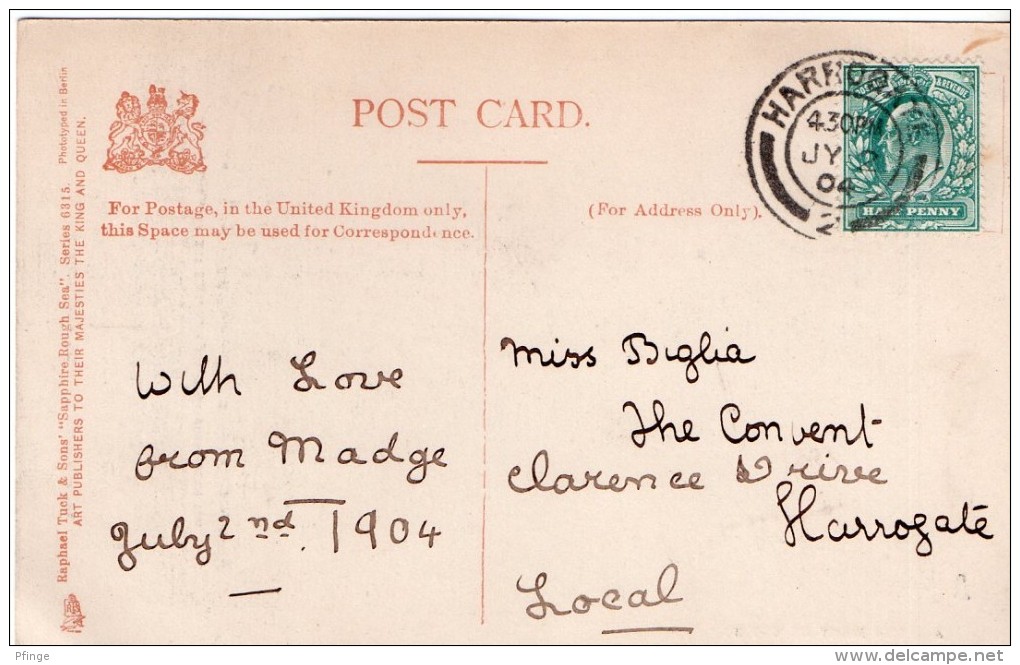 POST CARD.
For Postage, in the United Kingdom only,
this Space may be used for Correspondence.
(For Address Only).
4.30PM
JY
04
2
& REVENUE
HALF PENNY
Raphael Tuck & Sons' "Sapphire Rough Sea". Series 6315. Phototyped in Berlin
ART PUBLISHERS TO THEIR MAJESTIES THE KING AND QUEEN.
With Love
from Madge
July 2nd. 1904
Miss Biglia
The Convent
Clarence Drive
Harrogate
Local
Pfinge
delcampe.net